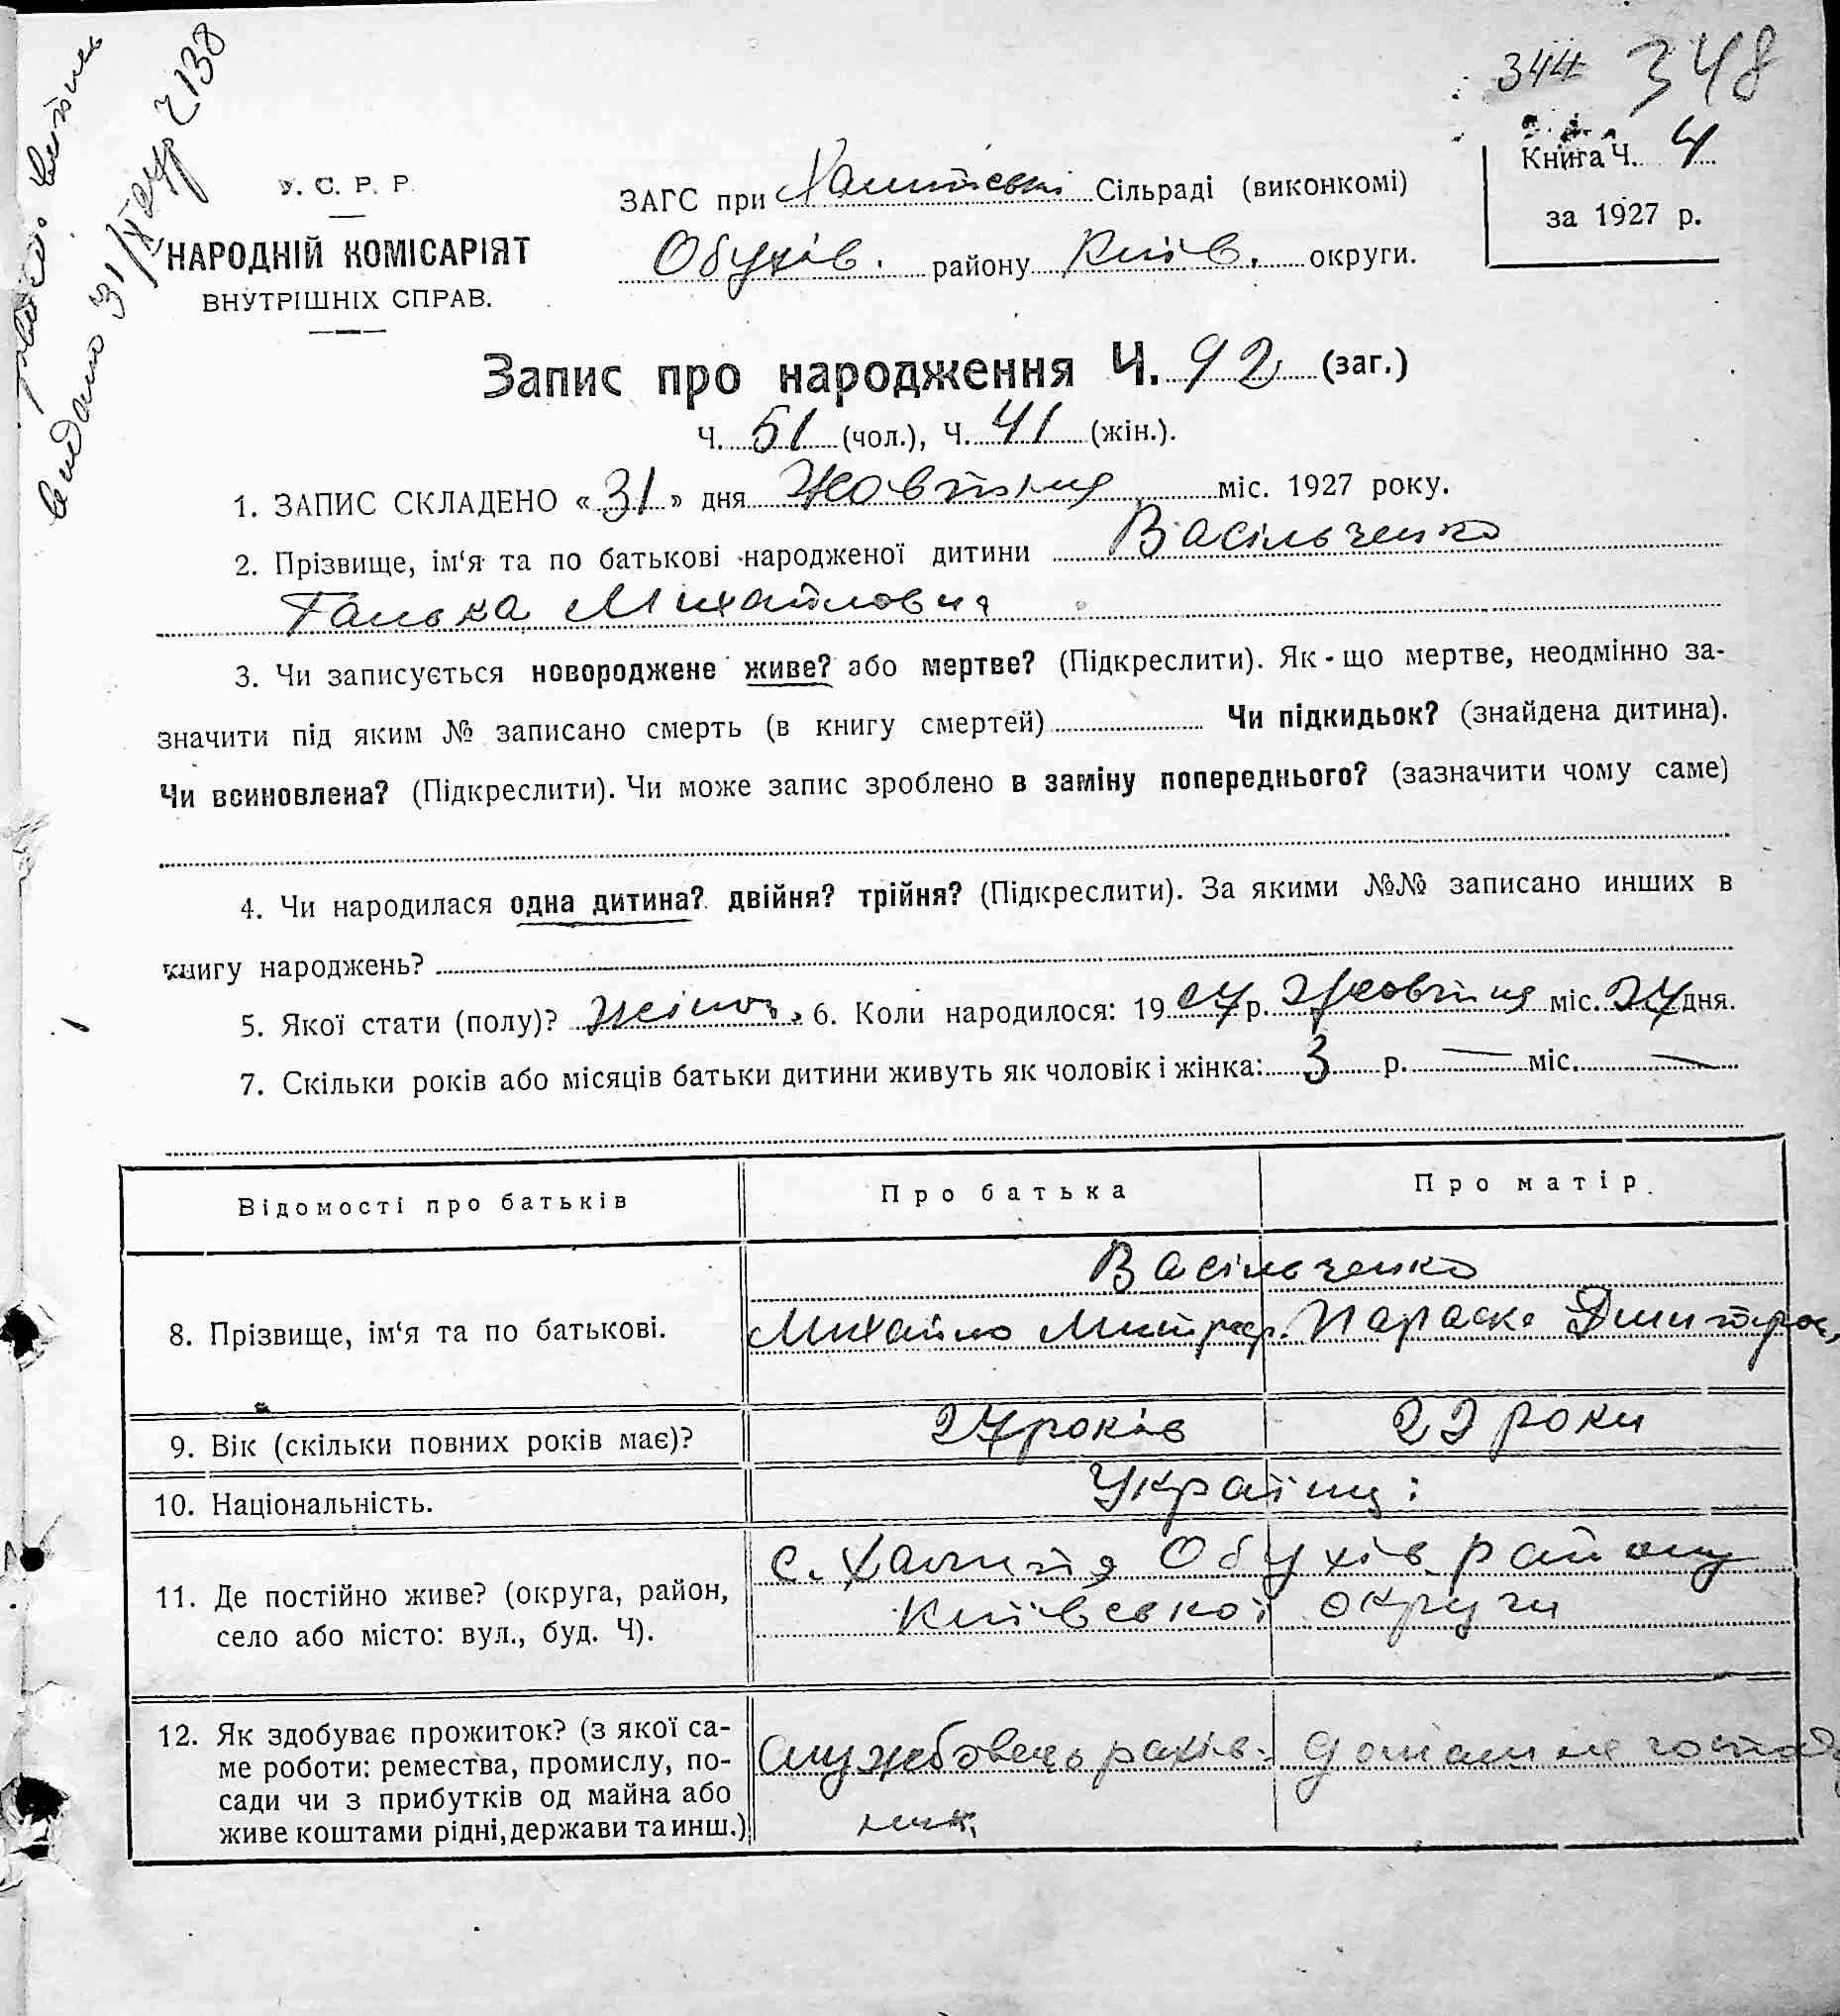 344 348
видано 31/X 27р ч 138
У. С. Р. Р.
НАРОДНІЙ КОМІСАРІЯТ
ВНУТРІШНІХ СПРАВ.
ЗАГС при Халепській Сільраді (виконкомі)
Обухів. району Київ. округи.
Книга Ч. 4
за 1927 р.
Запис про народження Ч. 92 (заг.)
Ч. 51 (чол.), Ч. 41 (жін.).
1. ЗАПИС СКЛАДЕНО «31» дня Жовтня міс. 1927 року.
2. Прізвище, ім‘я та по батькові народженої дитини Васільченко
Ганька Михайловна
3. Чи записується новороджене живе? або мертве? (Підкреслити). Як-що мертве, неодмінно за-
значити під яким № записано смерть (в книгу смертей) Чи підкидьок? (знайдена дитина).
Чи всиновлена? (Підкреслити). Чи може запис зроблено в заміну попереднього? (зазначити чому саме)
4. Чи народилася одна дитина? двійня? трійня? (Підкреслити). За якими №№ записано инших в
книгу народжень?
5. Якої стати (полу)? Жіноч. 6. Коли народилося: 1927 р. Жовтня міс. 24 дня.
7. Скільки років або місяців батьки дитини живуть як чоловік і жінка: 3 р. — міс. —
Відомості про батьків Про батька Про матір.
8. Прізвище, ім‘я та по батькові. Васільченко
Михайло Митроф. Параска Дмитров.
9. Вік (скільки повних років має)? 27 років 22 роки
10. Національність. Українці
11. Де постійно живе? (округа, район,
село або місто: вул., буд. Ч).
с. Халепя Обухів. району
Київської округи
12. Як здобуває прожиток? (з якої са-
ме роботи: ремества, промислу, по-
сади чи з прибутків од майна або
живе коштами рідні, держави та инш.)
Службовець рахів-
ник.
домашнє господ